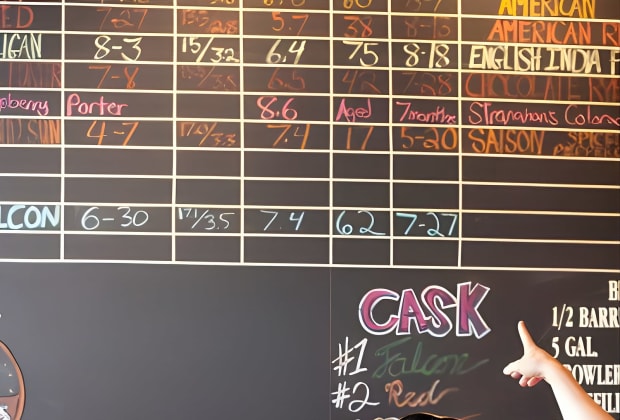 AMERICAN
ED 7-27 5.7 38 AMERICAN R
IGAN 8-3 15/3.2 6.4 75 8-18 ENGLISH INDIA P
7-8 6.5 42 7-28 CHOCOLATE RYE
pberry Porter 8.6 Aged 7months Stranahans Colora
SUN 4-7 7.4 17 5-20 SAISON SPICE
LCON 6-30 17.1/3.5 7.4 62 7-27
CASK
#1 Falcon
#2 Red
B
1/2 BARR
5 GAL.
OWLER
FILL